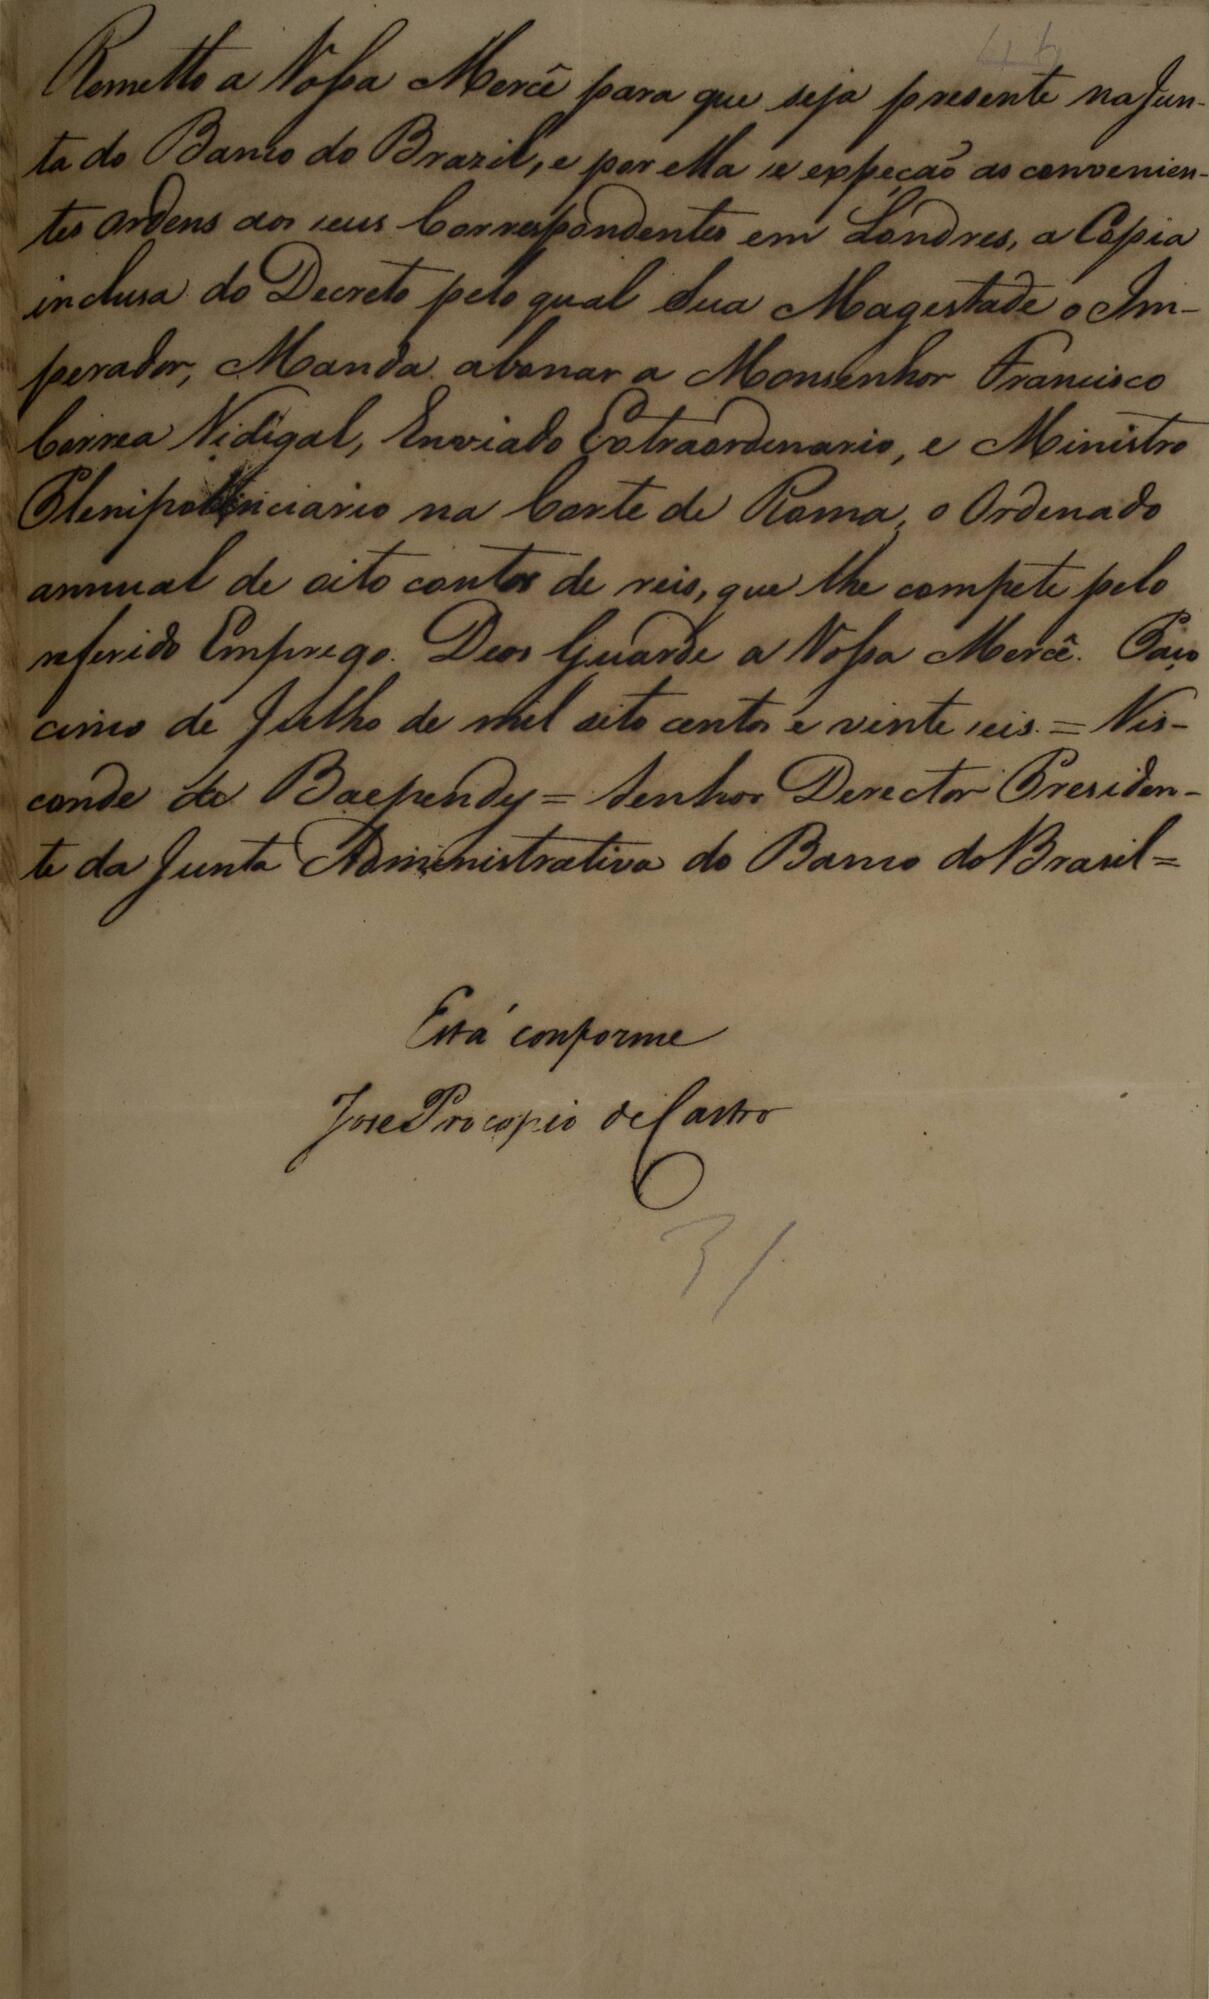 Remetto a Vossa Mercê para que seja presente na Jun-
ta do Banco do Brazil, e por ella se expeção as convenien-
tes Ordens aos seus Correspondentes em Londres, a Cópia
inclusa do Decreto pelo qual Sua Magestade o Im-
perador, Manda abonar a Monsenhor Francisco
Correa Vidigal, Enviado Extraordenario, e Ministro
Plenipotenciario na Corte de Roma, o Ordenado
annual de oito contos de reis, que lhe compete pelo
referido Emprego. Deos Guarde a Vossa Mercê. Paço
cinco de Julho de mil oito centos e vinte seis. = Vis-
conde de Baependy = Senhor Derector Presiden-
te da Junta Administrativa do Banco do Brasil =
Está conforme
Jose Procopio de Castro
31